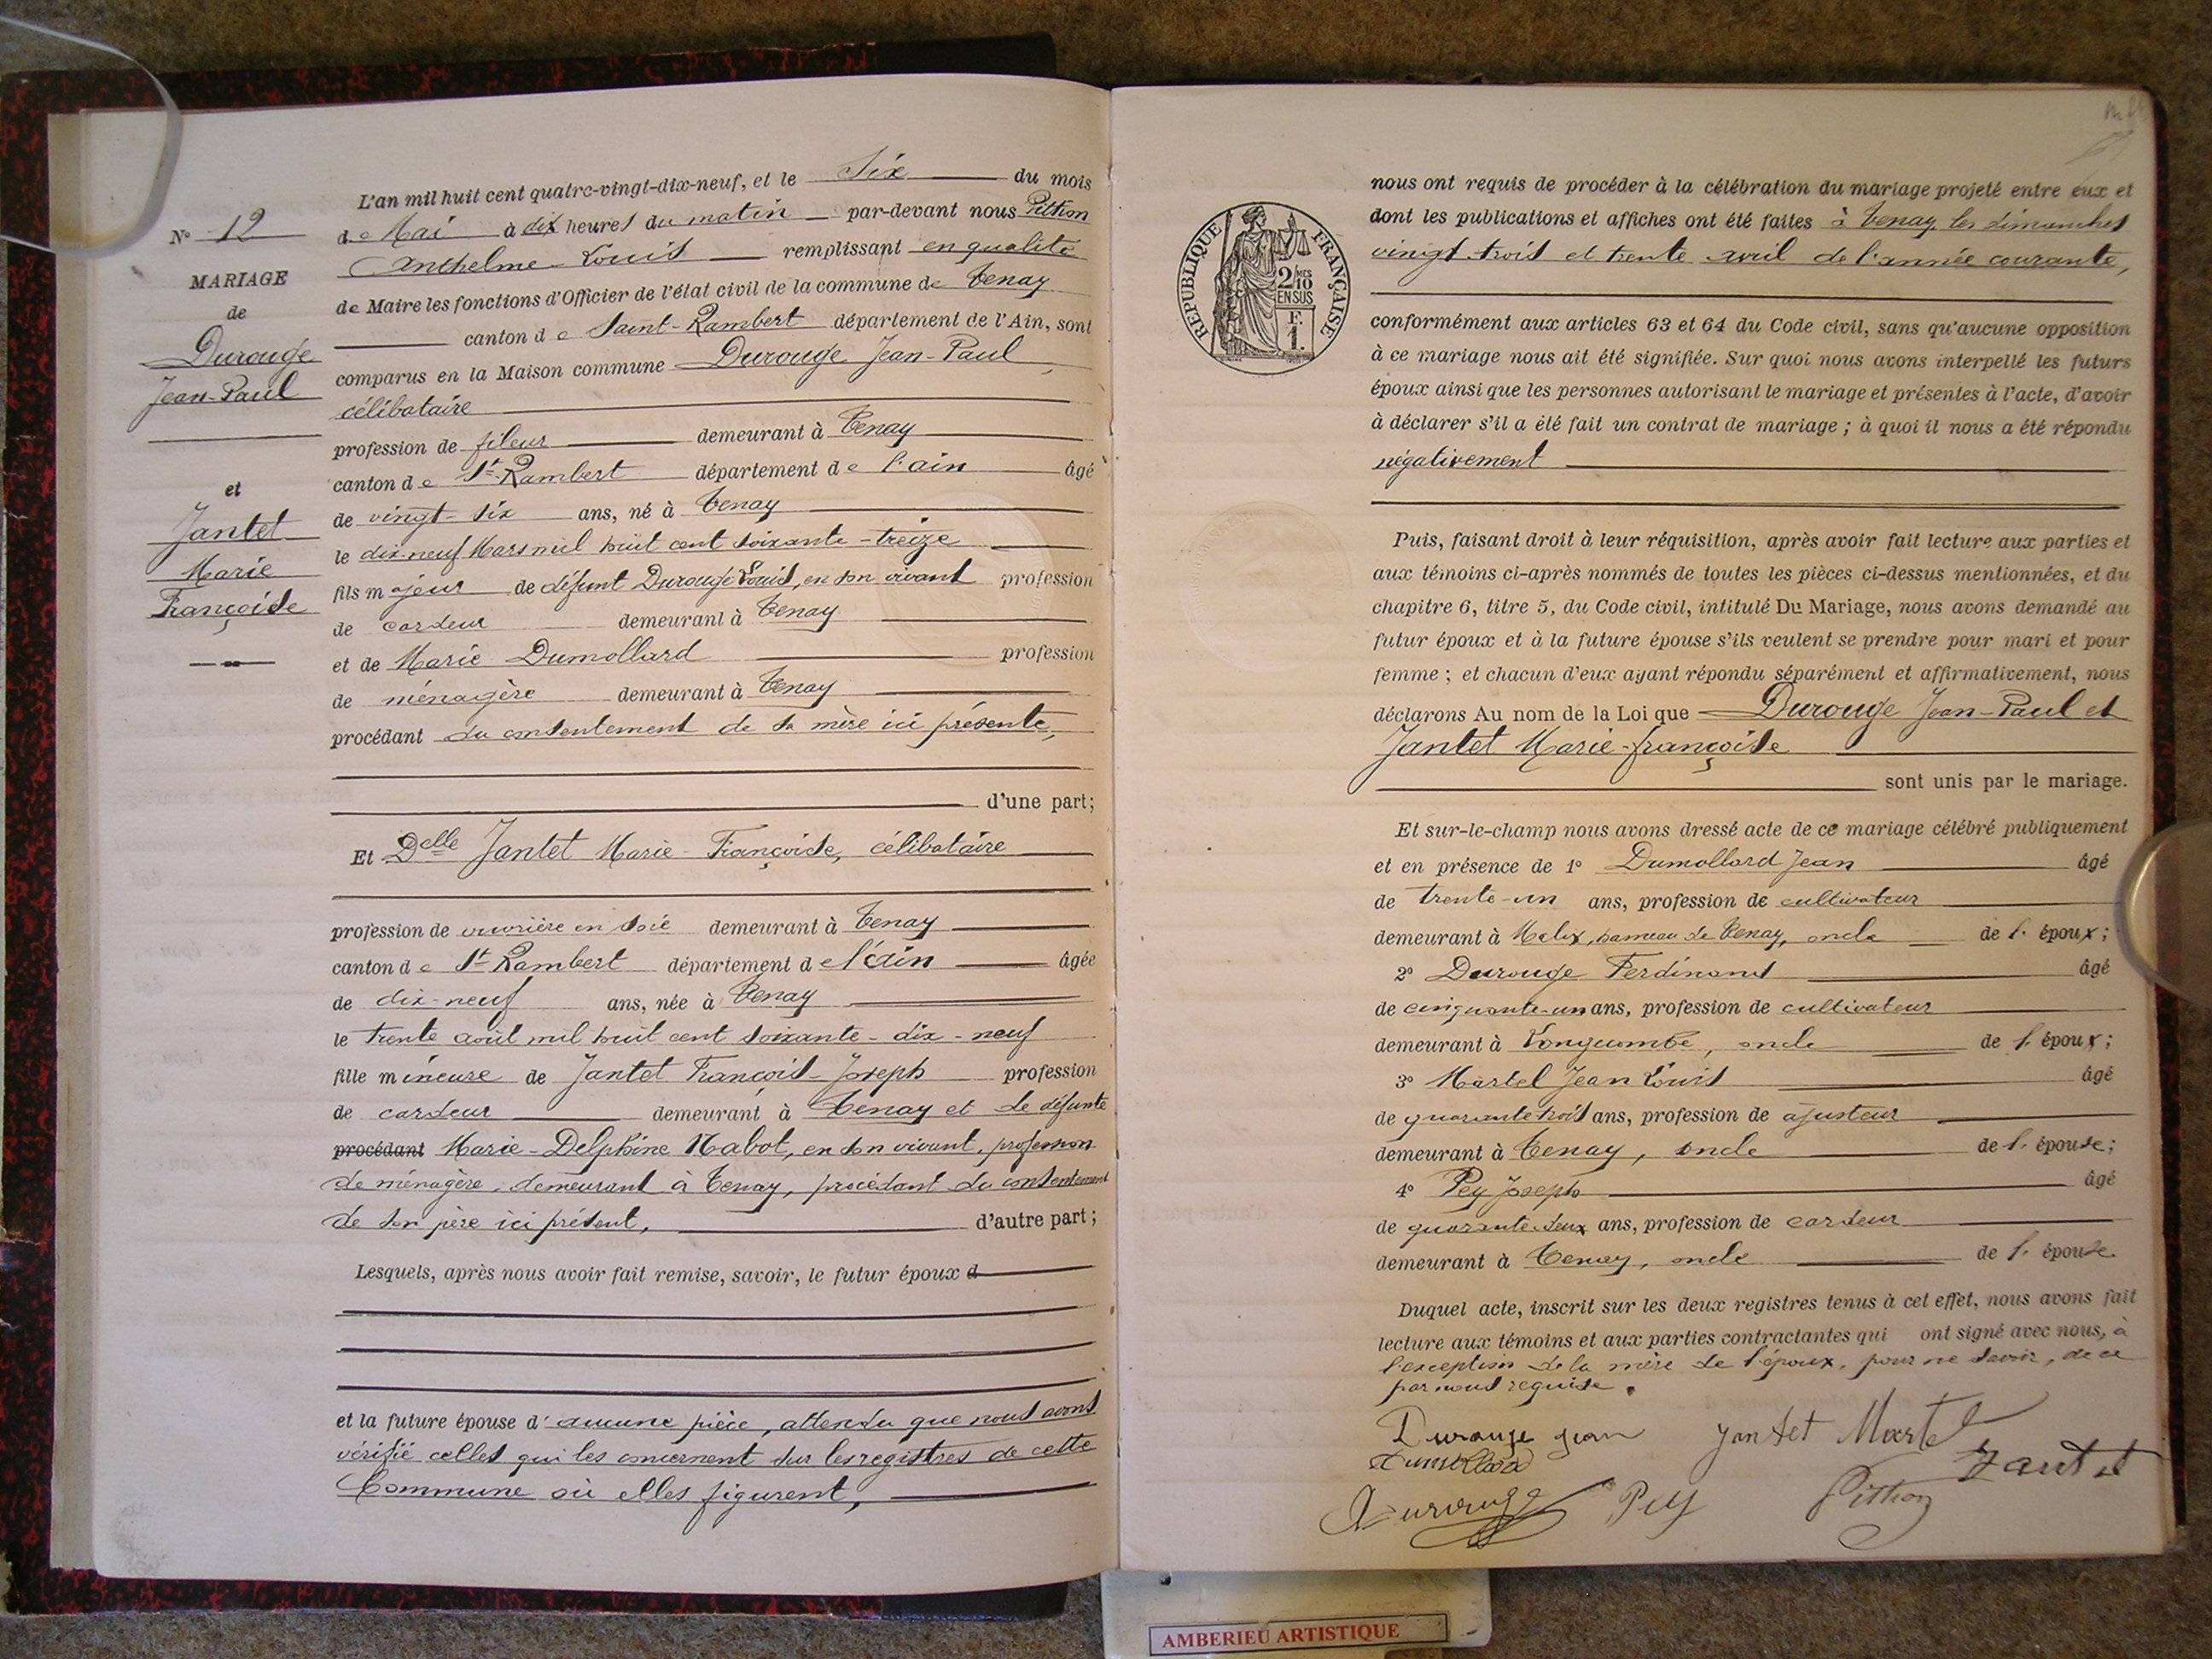 N° 12
MARIAGE
de
Durouge
Jean-Paul
et
Jantet
Marie
Françoise
L'an mil huit cent quatre-vingt-dix-neuf, et le Six du mois
de Mai à dix heures du matin par-devant nous Pithon
Anthelme Louis remplissant en qualité
de Maire les fonctions d'Officier de l'état civil de la commune de Tenay
canton de Saint-Rambert département de l'Ain, sont
comparus en la Maison commune Durouge Jean-Paul,
célibataire
profession de fileur demeurant à Tenay
canton de St-Rambert département de l'ain âgé
de vingt-six ans, né à Tenay
le dix-neuf Mars mil huit cent soixante-treize
fils majeur de défunt Durouge Louis, en son vivant profession
de cardeur demeurant à Tenay
et de Marie Dumollard profession
de ménagère demeurant à Tenay
procédant du consentement de sa mère ici présente,
d'une part;
Et Delle Jantet Marie-Françoise, célibataire
profession de ouvrière en soie demeurant à Tenay
canton de St-Rambert département de l'ain âgée
de dix-neuf ans, née à Tenay
le trente août mil huit cent soixante-dix-neuf
fille mineure de Jantet François-Joseph profession
de cardeur demeurant à Tenay et de défunte
procédant Marie-Delphine Nabot, en son vivant, profession
de ménagère, demeurant à Tenay, procédant du consentement
de son père ici présent, d'autre part;
Lesquels, après nous avoir fait remise, savoir, le futur époux d
et la future épouse d'aucune pièce, attendu que nous avons
vérifié celles qui les concernent sur les registres de cette
Commune où elles figurent,
REPUBLIQUE FRANÇAISE
2/10
EN SUS
F.
1.
nous ont requis de procéder à la célébration du mariage projeté entre eux et
dont les publications et affiches ont été faites à Tenay, les dimanches
vingt-trois et trente avril de l'année courante,
conformément aux articles 63 et 64 du Code civil, sans qu'aucune opposition
à ce mariage nous ait été signifiée. Sur quoi nous avons interpellé les futurs
époux ainsi que les personnes autorisant le mariage et présentes à l'acte, d'avoir
à déclarer s'il a été fait un contrat de mariage ; à quoi il nous a été répondu
négativement
Puis, faisant droit à leur réquisition, après avoir fait lecture aux parties et
aux témoins ci-après nommés de toutes les pièces ci-dessus mentionnées, et du
chapitre 6, titre 5, du Code civil, intitulé Du Mariage, nous avons demandé au
futur époux et à la future épouse s'ils veulent se prendre pour mari et pour
femme ; et chacun d'eux ayant répondu séparément et affirmativement, nous
déclarons Au nom de la Loi que Durouge Jean-Paul et
Jantet Marie-françoise
sont unis par le mariage.
Et sur-le-champ nous avons dressé acte de ce mariage célébré publiquement
et en présence de 1° Dumollard Jean âgé
de trente-un ans, profession de cultivateur
demeurant à Malix, hameau de Tenay, oncle de l'époux;
2° Durouge Ferdinand âgé
de cinquante-un ans, profession de cultivateur
demeurant à Longecombe, oncle de l'époux;
3° Martel Jean Louis âgé
de quarante trois ans, profession de ajusteur
demeurant à Tenay, oncle de l'épouse;
4° Pey Joseph âgé
de quarante-deux ans, profession de cardeur
demeurant à Tenay, oncle de l'épouse
Duquel acte, inscrit sur les deux registres tenus à cet effet, nous avons fait
lecture aux témoins et aux parties contractantes qui ont signé avec nous, à
l'exception de la mère de l'époux, pour ne savoir, de ce
par nous requise.
Durouge jean Jantet Martel
Dumollard Jantet
Durouge Pey Pithon
AMBERIEU ARTISTIQUE